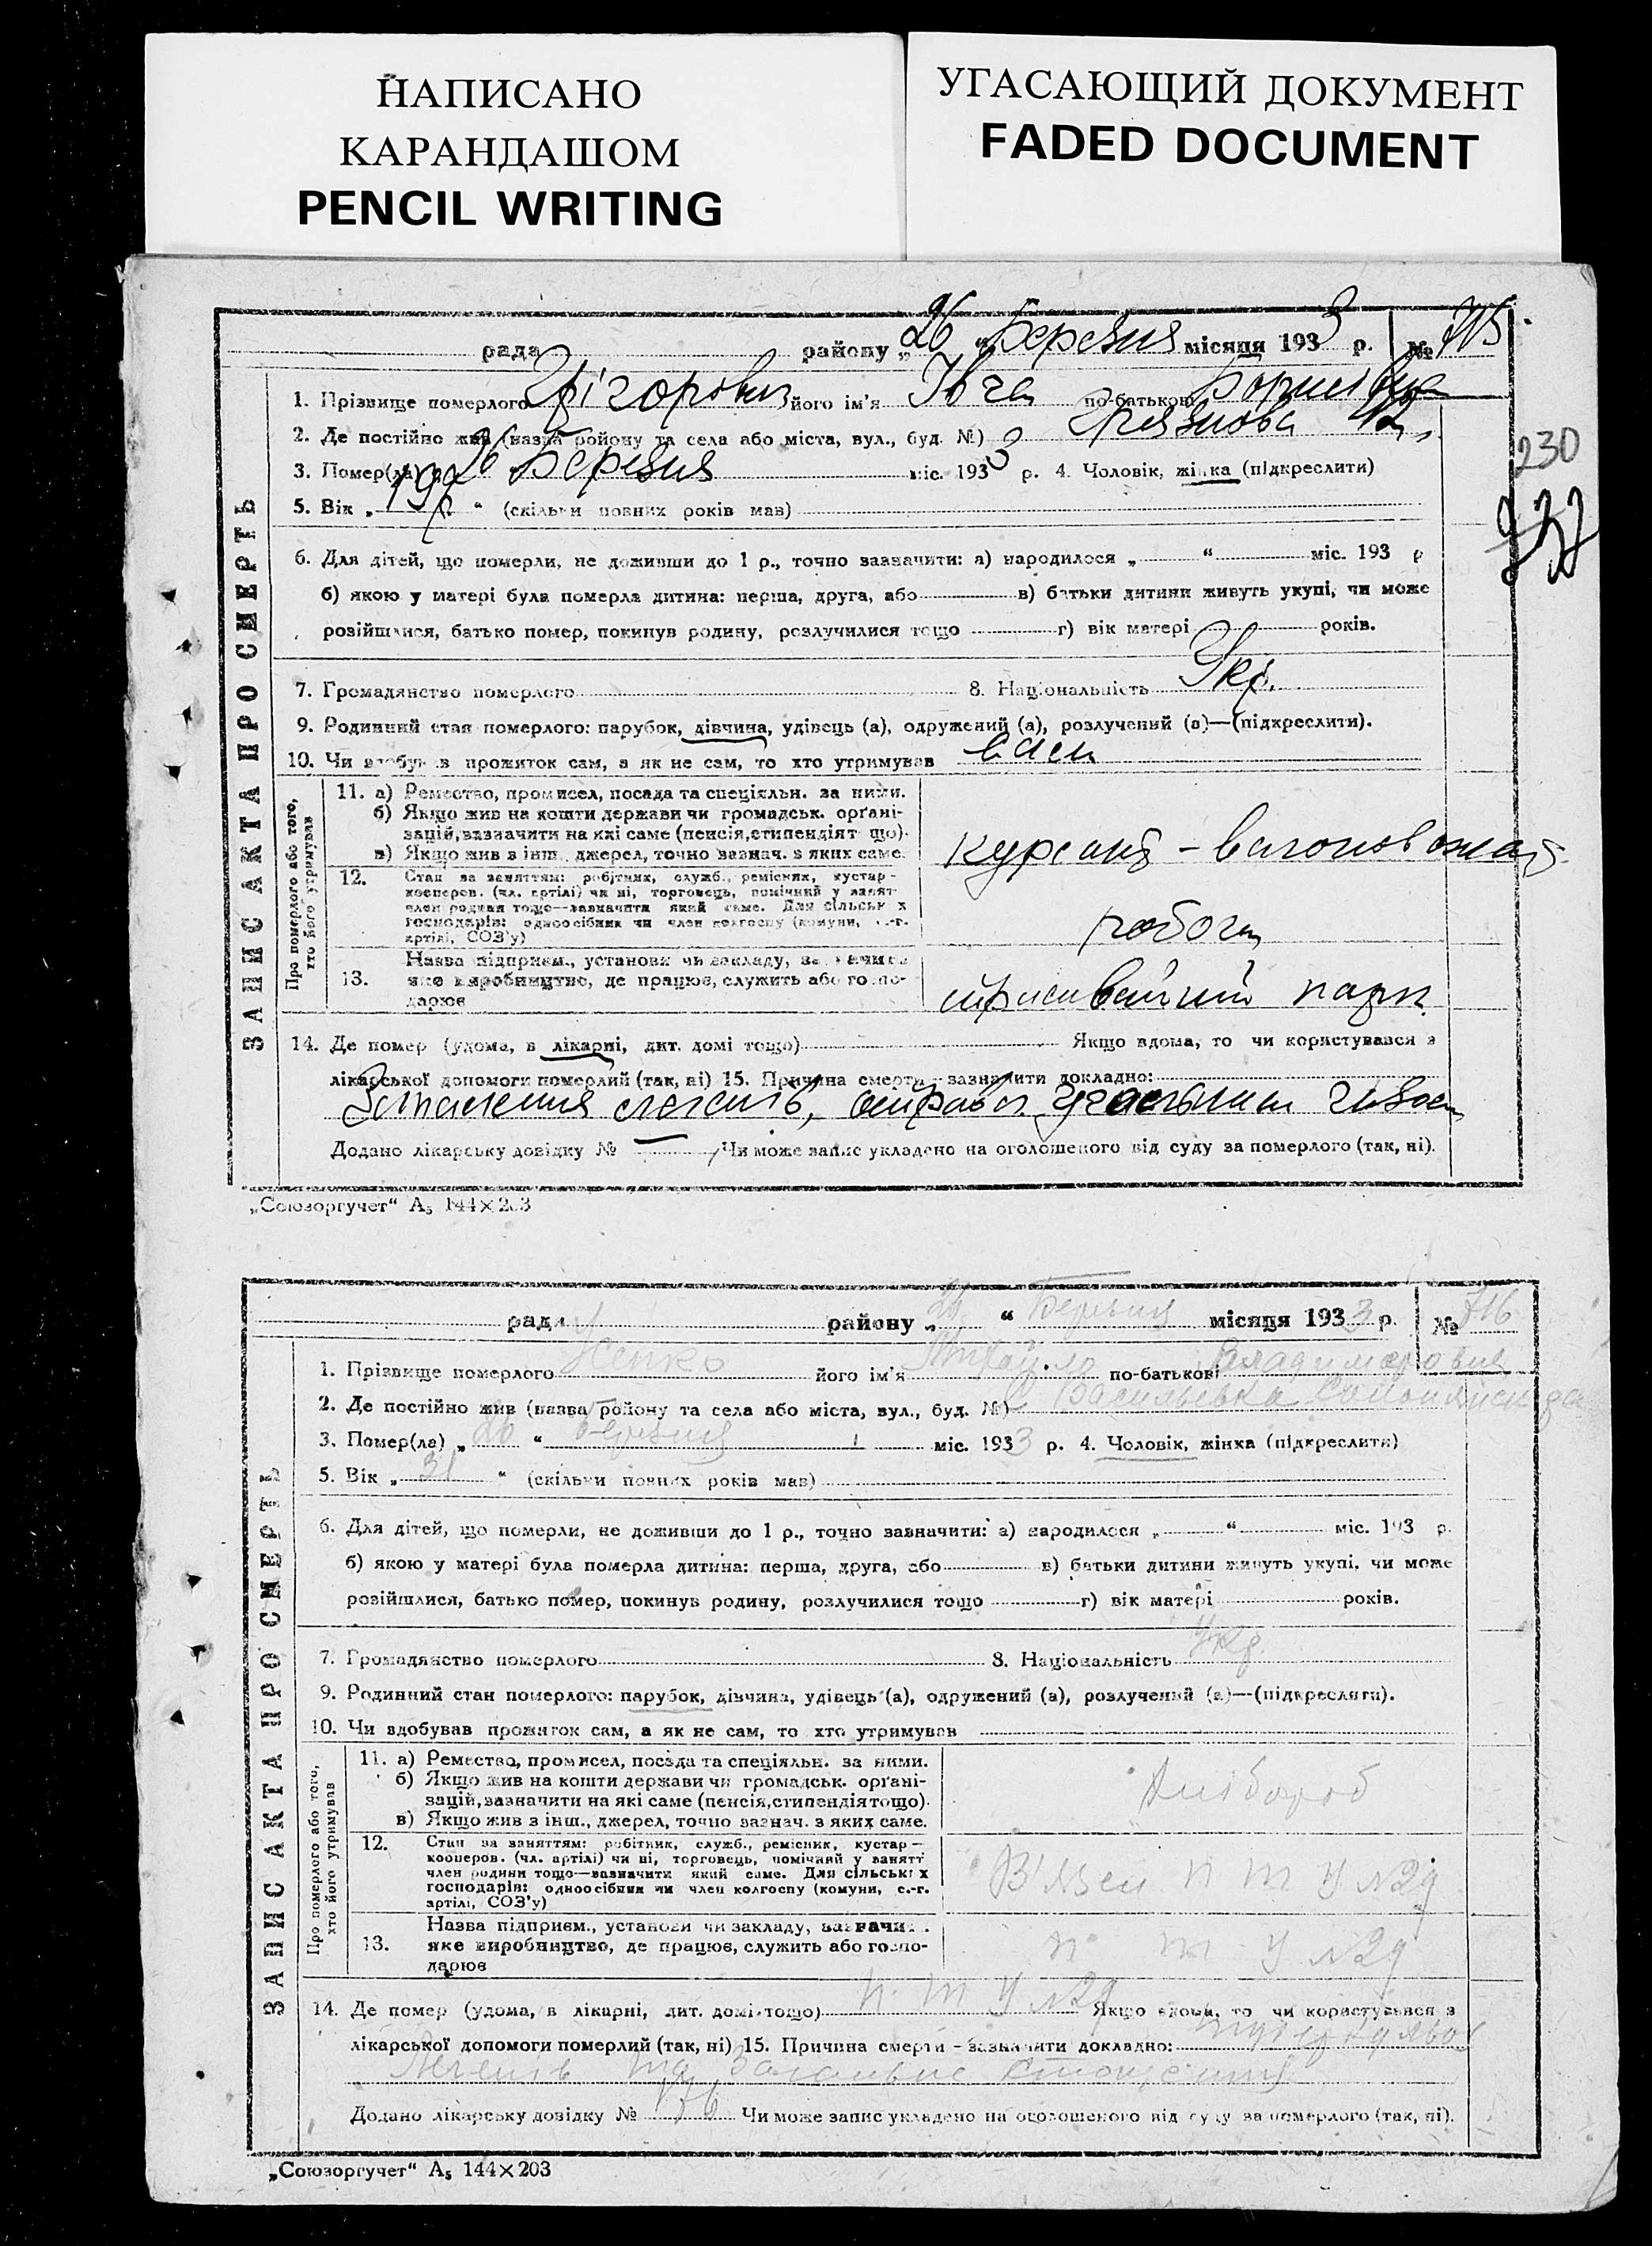 НАПИСАНО
КАРАНДАШОМ
PENCIL WRITING
УГАСАЮЩИЙ ДОКУМЕНТ
FADED DOCUMENT
ЗАПИС АКТА ПРО СМЕРТЬ
рада району „26 “ Березня місяця 1933 р. № 715
1. Прізвище померлого Грігорович його ім'я по-батькові
2. Де постійно жив (назва району та села або міста, вул., буд. №) 12
3. Помер(ла) „26 Березня міс. 1933 р. 4. Чоловік, жінка (підкреслити)
230
5. Вік „ 19 “ (скільки повних років мав)
6. Для дітей, що померли, не доживши до 1 р., точно зазначити: а) народилося „ “ міс. 193 р
б) якою у матері була померла дитина: перша, друга, або в) батьки дитини живуть укупі, чи може
розійшлися, батько помер, покинув родину, розлучилися тощо г) вік матері років.
7. Громадянство померлого 8. Національність Укр.
9. Родинний стан померлого: парубок, дівчина, удівець (а), одружений (а), розлучений (а)—(підкреслити).
10. Чи здобував прожиток сам, а як не сам, то хто утримував сам
Про померлого або того, хто його утримував
11. а) Ремество, промисел, посада та спеціяльн. за ними.
б) Якщо жив на кошти держави чи громадськ. орґані-
зацій, зазначити на які саме (пенсія, стипендія т що).
в) Якщо жив з інш. джерел, точно зазнач. з яких саме.
курсант - вагоновожат.
12. Стан за заняттям: робітник, служб., ремісник, кустар-
кооперов. (чл. артілі) чи ні, торговець, помічний у занят
член родини тощо—зазначити який саме. Для сільськ х
господарів: одноосібник чи член колгоспу (комуни, с.-г.
артілі, СОЗ'у)
робоча
13. Назва підприєм., установи чи закладу, зазначив
яке виробництво, де працює, служить або госпо-
дарює
трамвайний парк
14. Де помер (удома, в лікарні, дит. домі тощо) Якщо вдома, то чи користувався з
лікарської допомоги померлий (так, ні) 15. Причина смерти - зазначити докладно:
Запалення легенів,
Додано лікарську довідку № — Чи може запис укладено на оголошеного від суду за померлого (так, ні).
„Союзоргучет“ А₅ 144×203
ЗАПИС АКТА ПРО СМЕРТЬ
рада району „26 “ Березня місяця 1933 р. № 716
1. Прізвище померлого Усенко його ім'я Михайло по-батькові Владимирович
2. Де постійно жив (назва району та села або міста, вул., буд. №) С Васильевка
3. Помер(ла) „ 26 “ березня міс. 1933 р. 4. Чоловік, жінка (підкреслити)
5. Вік „ 31 “ (скільки повних років мав)
6. Для дітей, що померли, не доживши до 1 р., точно зазначити: а) народилося „ “ міс. 193 р.
б) якою у матері була померла дитина: перша, друга, або в) батьки дитини живуть укупі, чи може
розійшлися, батько помер, покинув родину, розлучилися тощо г) вік матері років.
7. Громадянство померлого 8. Національність Укр.
9. Родинний стан померлого: парубок, дівчина, удівець (а), одружений (а), розлучений (а)—(підкреслити).
10. Чи здобував прожиток сам, а як не сам, то хто утримував
Про померлого або того, хто його утримував
11. а) Ремество, промисел, посада та спеціяльн. за ними.
б) Якщо жив на кошти держави чи громадськ. орґані-
зацій, зазначити на які саме (пенсія, стипендія тощо).
в) Якщо жив з інш., джерел, точно зазнач. з яких саме.
Хлібороб
12. Стан за заняттям: робітник, служб., ремісник, кустар—
кооперов. (чл. артілі) чи ні, торговець, помічний у занятт
член родини тощо—зазначити який саме. Для сільськіх
господарів: одноосібник чи член колгоспу (комуни, с.-г.
артілі, СОЗ'у)
В'язен п т у №29
13. Назва підприєм., установи чи закладу, зазначи
яке виробництво, де працює, служить або госпо-
дарює
п т у №29
14. Де помер (удома, в лікарні, дит. домі тощо) п т у №29 Якщо вдома, то чи користувався з
лікарської допомоги померлий (так, ні) 15. Причина смерти - зазначити докладно: туберкульоз
легенів та загальне
Додано лікарську довідку № 176 Чи може запис укладено на оголошеного від суду за померлого (так, ні).
„Союзоргучет“ А₅ 144×203